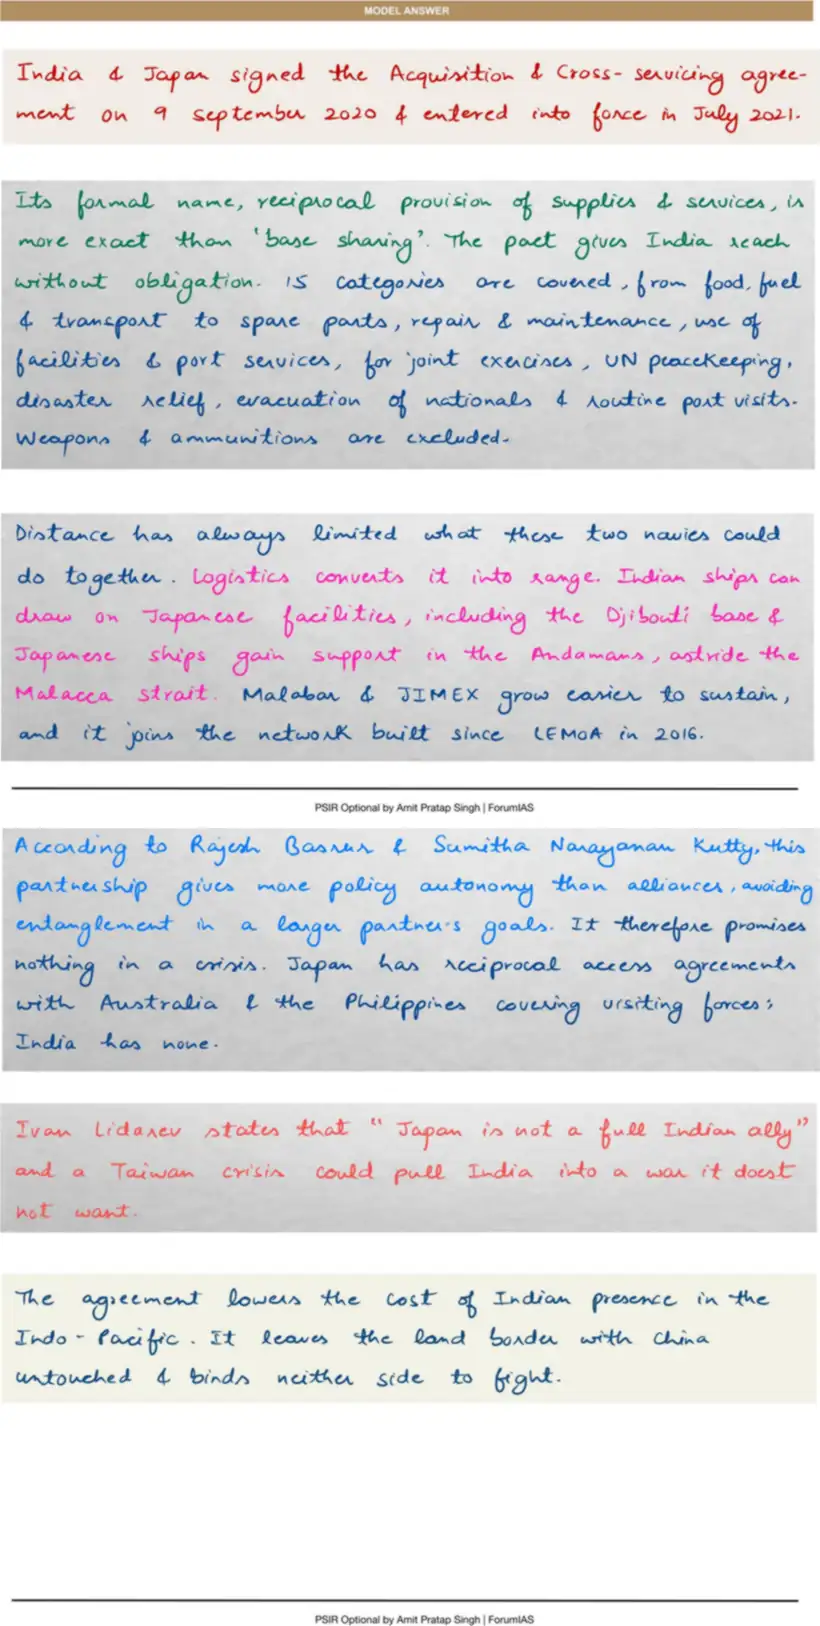 MODEL ANSWER
India & Japan signed the Acquisition & Cross-servicing agree-
ment on 9 september 2020 & entered into force in July 2021.
Its formal name, reciprocal provision of supplies & services, is
more exact than 'base sharing'. The pact gives India reach
without obligation. 15 categories are covered, from food, fuel
& transport to spare parts, repair & maintenance, use of
facilities & port services, for joint exercises, UN peacekeeping,
disaster relief, evacuation of nationals & routine port visits.
Weapons & ammunitions are excluded.
Distance has always limited what these two navies could
do together. Logistics converts it into range. Indian ships can
draw on Japanese facilities, including the Djibouti base &
Japanese ships gain support in the Andamans, astride the
Malacca strait. Malabar & JIMEX grow easier to sustain,
and it joins the network built since LEMOA in 2016.
PSIR Optional by Amit Pratap Singh | ForumIAS
According to Rajesh Basrur & Sumitha Narayanan Kutty, this
partnership gives more policy autonomy than alliances, avoiding
entanglement in a larger partner's goals. It therefore promises
nothing in a crisis. Japan has reciprocal access agreements
with Australia & the Philippines covering visiting forces;
India has none.
Ivan Lidarev states that "Japan is not a full Indian ally"
and a Taiwan crisis could pull India into a war it doest
not want.
The agreement lowers the cost of Indian presence in the
Indo-Pacific. It leaves the land border with China
untouched & binds neither side to fight.
PSIR Optional by Amit Pratap Singh | ForumIAS